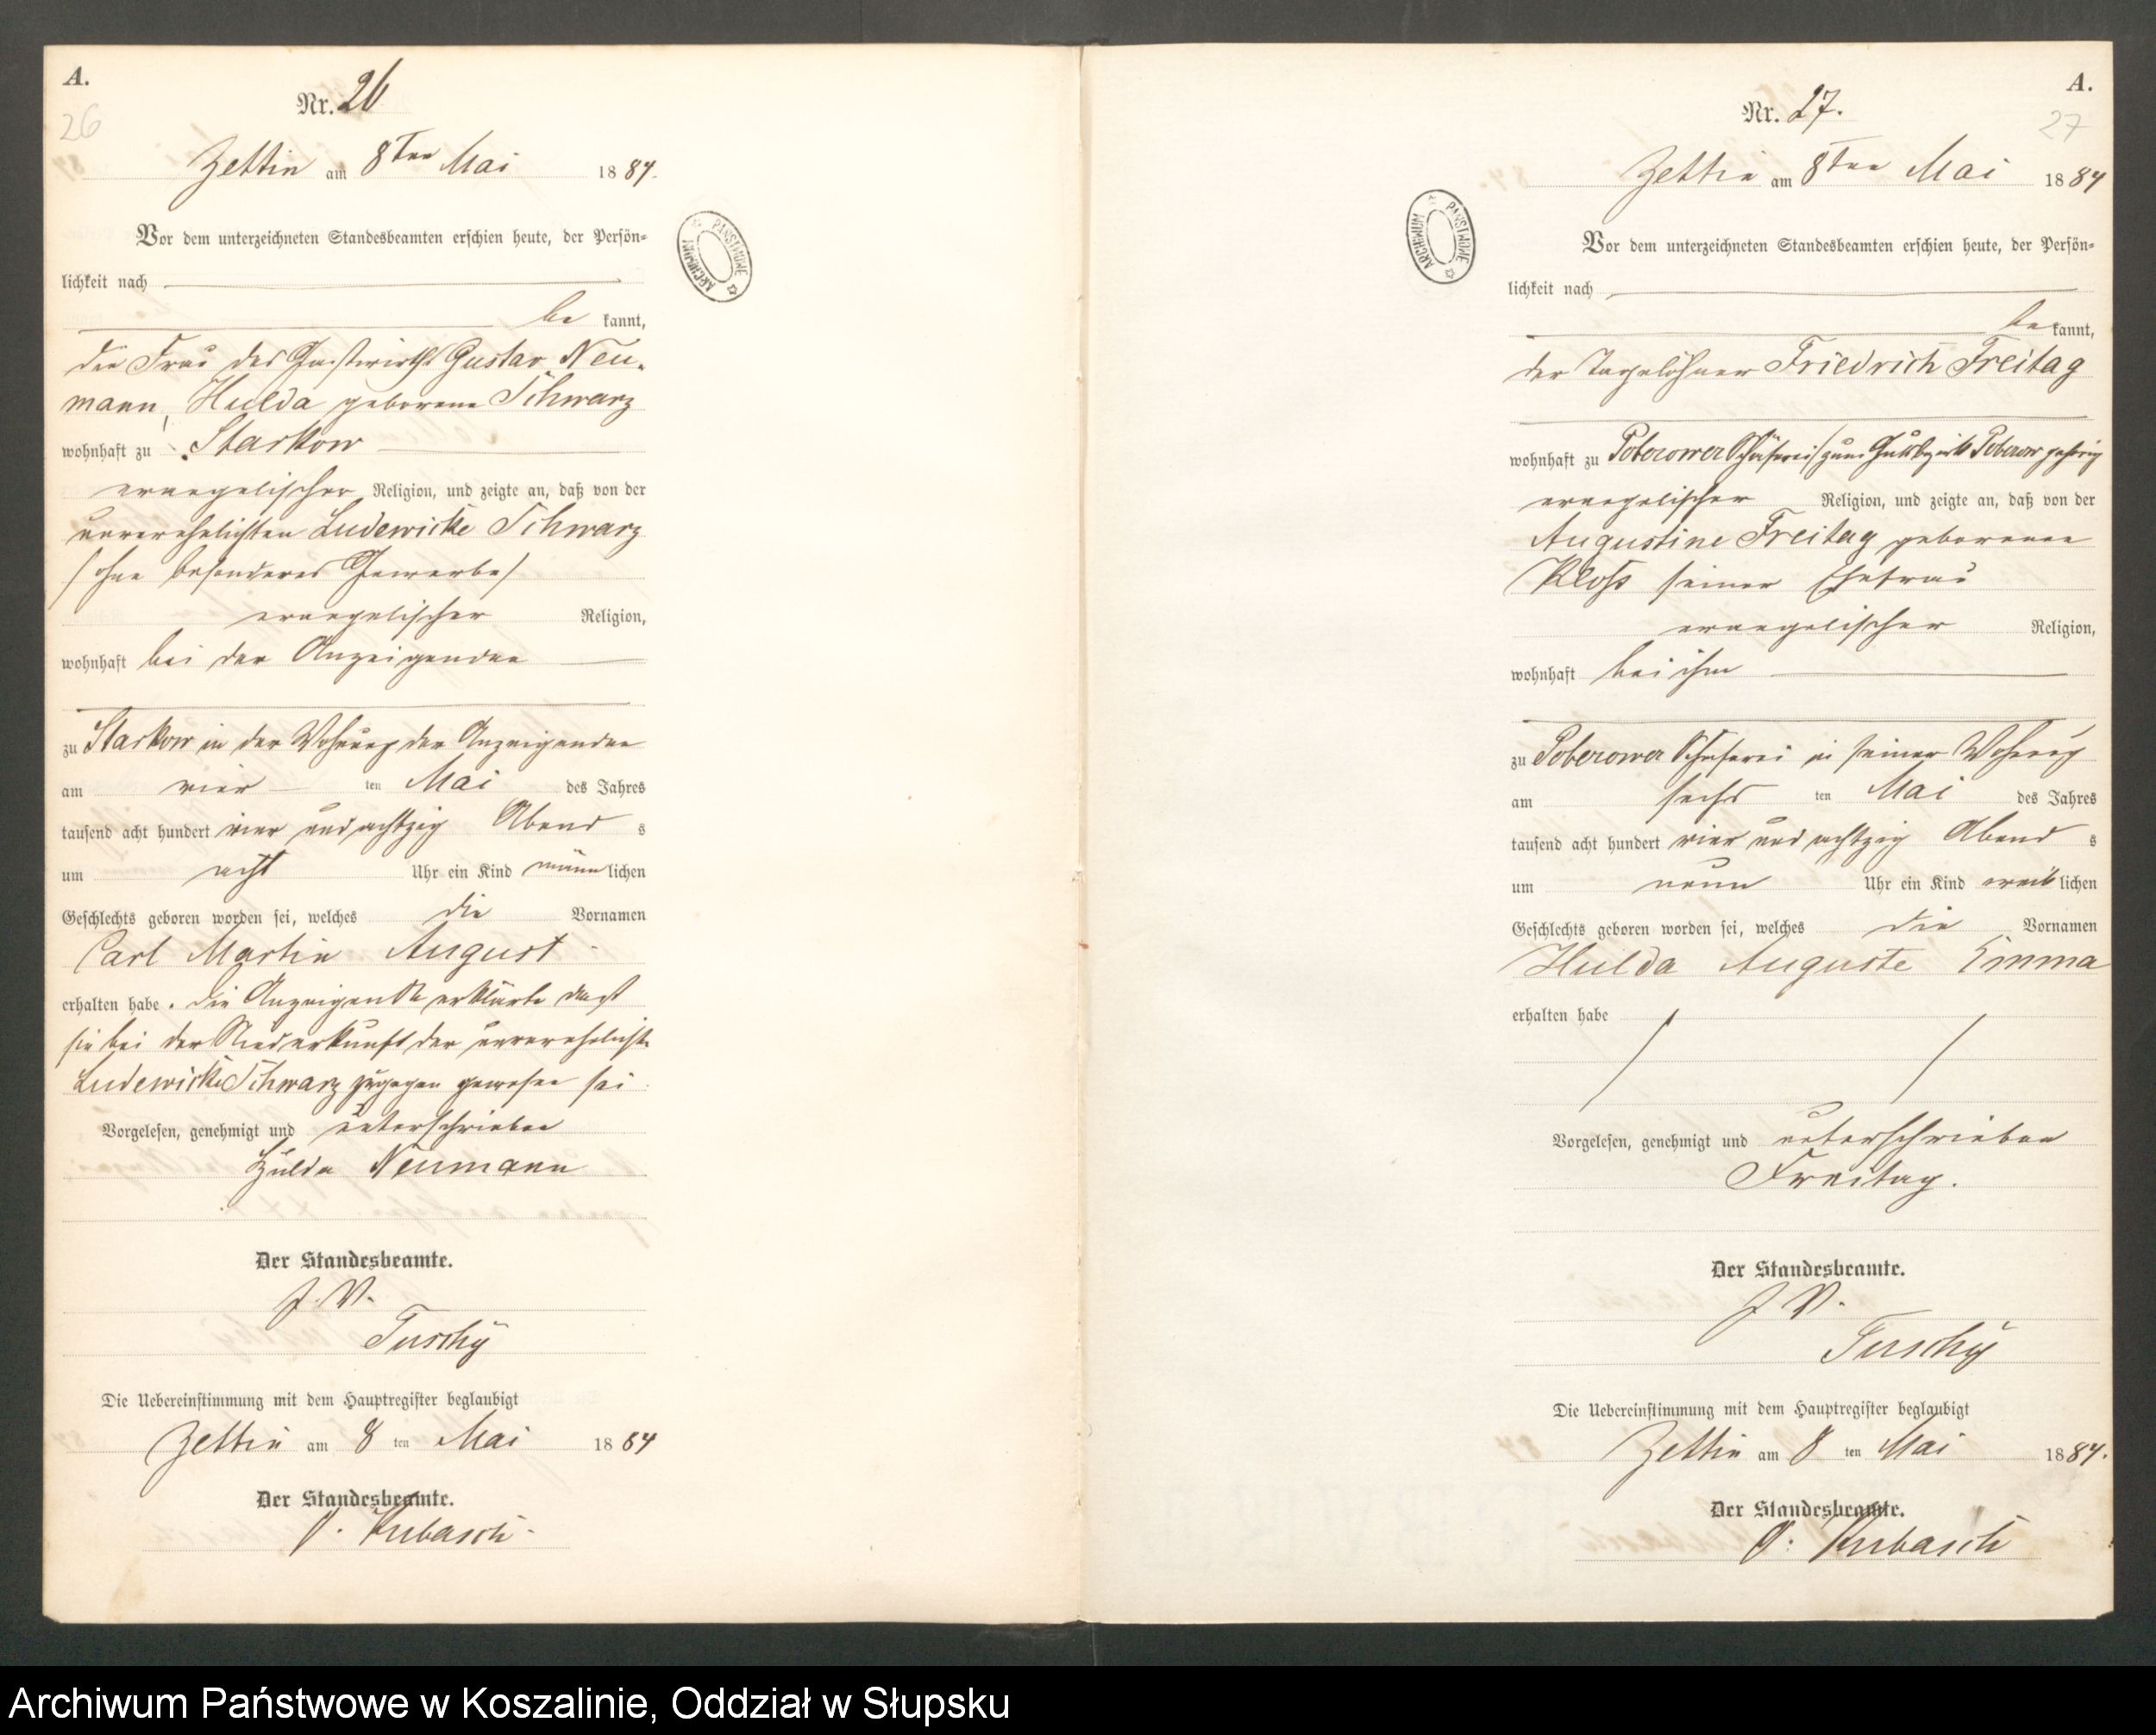 A.
26
Nr. 26
Zettin am 8ten Mai 1884.
Vor dem unterzeichneten Standesbeamten erschien heute, der Persön=
lichkeit nach
be kannt,
die Frau des Gastwirths Gustav Neu-
mann, Hulda geborene Schwarz
wohnhaft zu Starkow
evangelischer Religion, und zeigte an, daß von der
unverehelichten Ludewicke Schwarz
/ohne besonderes Gewerbe/
evangelischer Religion,
wohnhaft bei der Anzeigenden
zu Starkow in der Wohnung der Anzeigenden
am vier ten Mai des Jahres
tausend acht hundert vier und achtzig Abend s
um acht Uhr ein Kind männlichen
Geschlechts geboren worden sei, welches die Vornamen
Carl Martin August
erhalten habe. die Anzeigende erklärte daß
sie bei der Niederkunft der unverehelicht.
Ludewicke Schwarz zugegen gewesen sei
Vorgelesen, genehmigt und unterschrieben
Hulda Neumann
Der Standesbeamte.
J. V.
Tuschy
Die Uebereinstimmung mit dem Hauptregister beglaubigt
Zettin am 8 ten Mai 1884
Der Standesbeamte.
v. Kubasch.
ARCHIWUM PAŃSTWOWE
A.
27
Nr. 27.
Zettin am 8ten Mai 1884
Vor dem unterzeichneten Standesbeamten erschien heute, der Persön=
lichkeit nach
be kannt,
der Tagelöhner Friedrich Freitag
wohnhaft zu Poberower Schäferei/zum Gutsbezirk Poberow gehörig
evangelischer Religion, und zeigte an, daß von der
Augustine Freitag geborenen
Kloß seiner Ehefrau
evangelischer Religion,
wohnhaft bei ihm
zu Poberower Schäferei in seiner Wohnung
am sechs ten Mai des Jahres
tausend acht hundert vier und achtzig Abend s
um neun Uhr ein Kind weiblichen
Geschlechts geboren worden sei, welches die Vornamen
Hulda Auguste Emma
erhalten habe
Vorgelesen, genehmigt und unterschrieben
Freitag.
Der Standesbeamte.
J. V.
Tuschy
Die Uebereinstimmung mit dem Hauptregister beglaubigt
Zettin am 8 ten Mai 1884.
Der Standesbeamte.
v. Kubasch
ARCHIWUM PAŃSTWOWE
Archiwum Państwowe w Koszalinie, Oddział w Słupsku